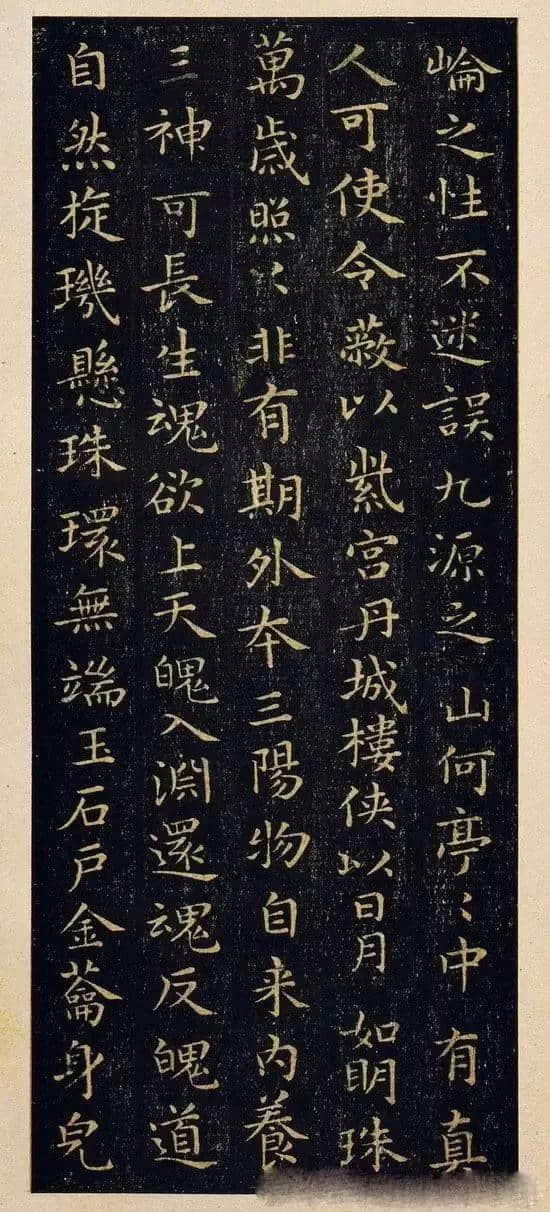 崘之性不迷誤九源之山何亭〻中有真
人可使令蔽以紫宮丹城樓侠以日月如明珠
萬歲照〻非有期外夲三陽物自来內養
三神可長生魂欲上天魄入淵還魂反魄道
自然㫌璣懸珠環無端玉石戶金蘥身皃